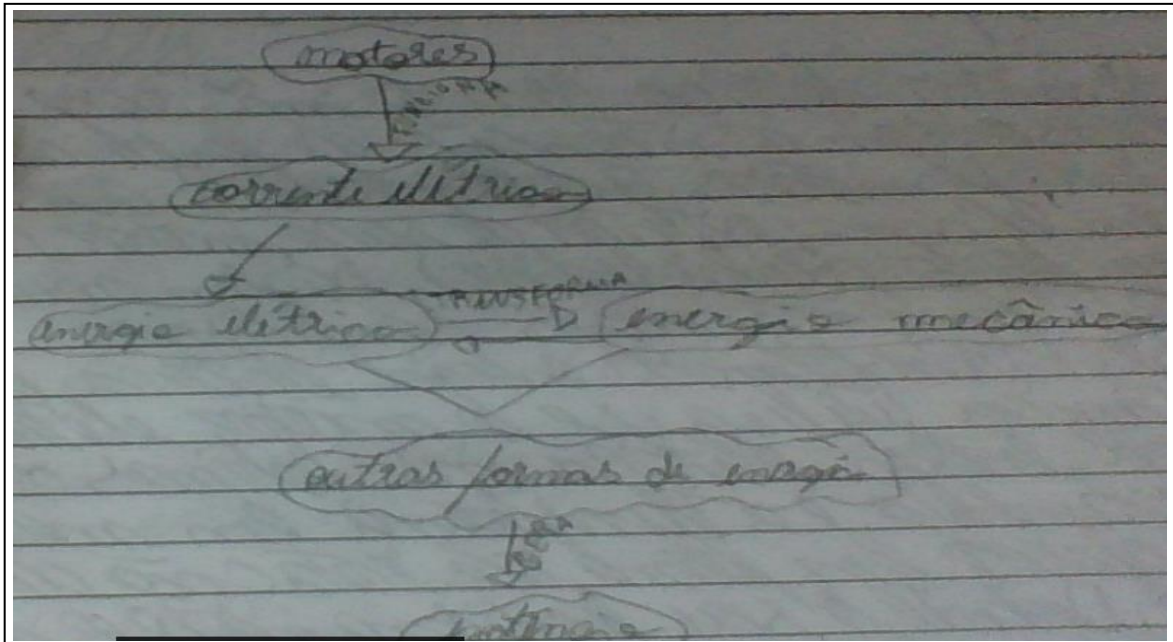 motores
FUNCIONA
corrente elétrica
energia elétrica TRANSFORMA energia mecânica
outras formas de energia
GERA
potência